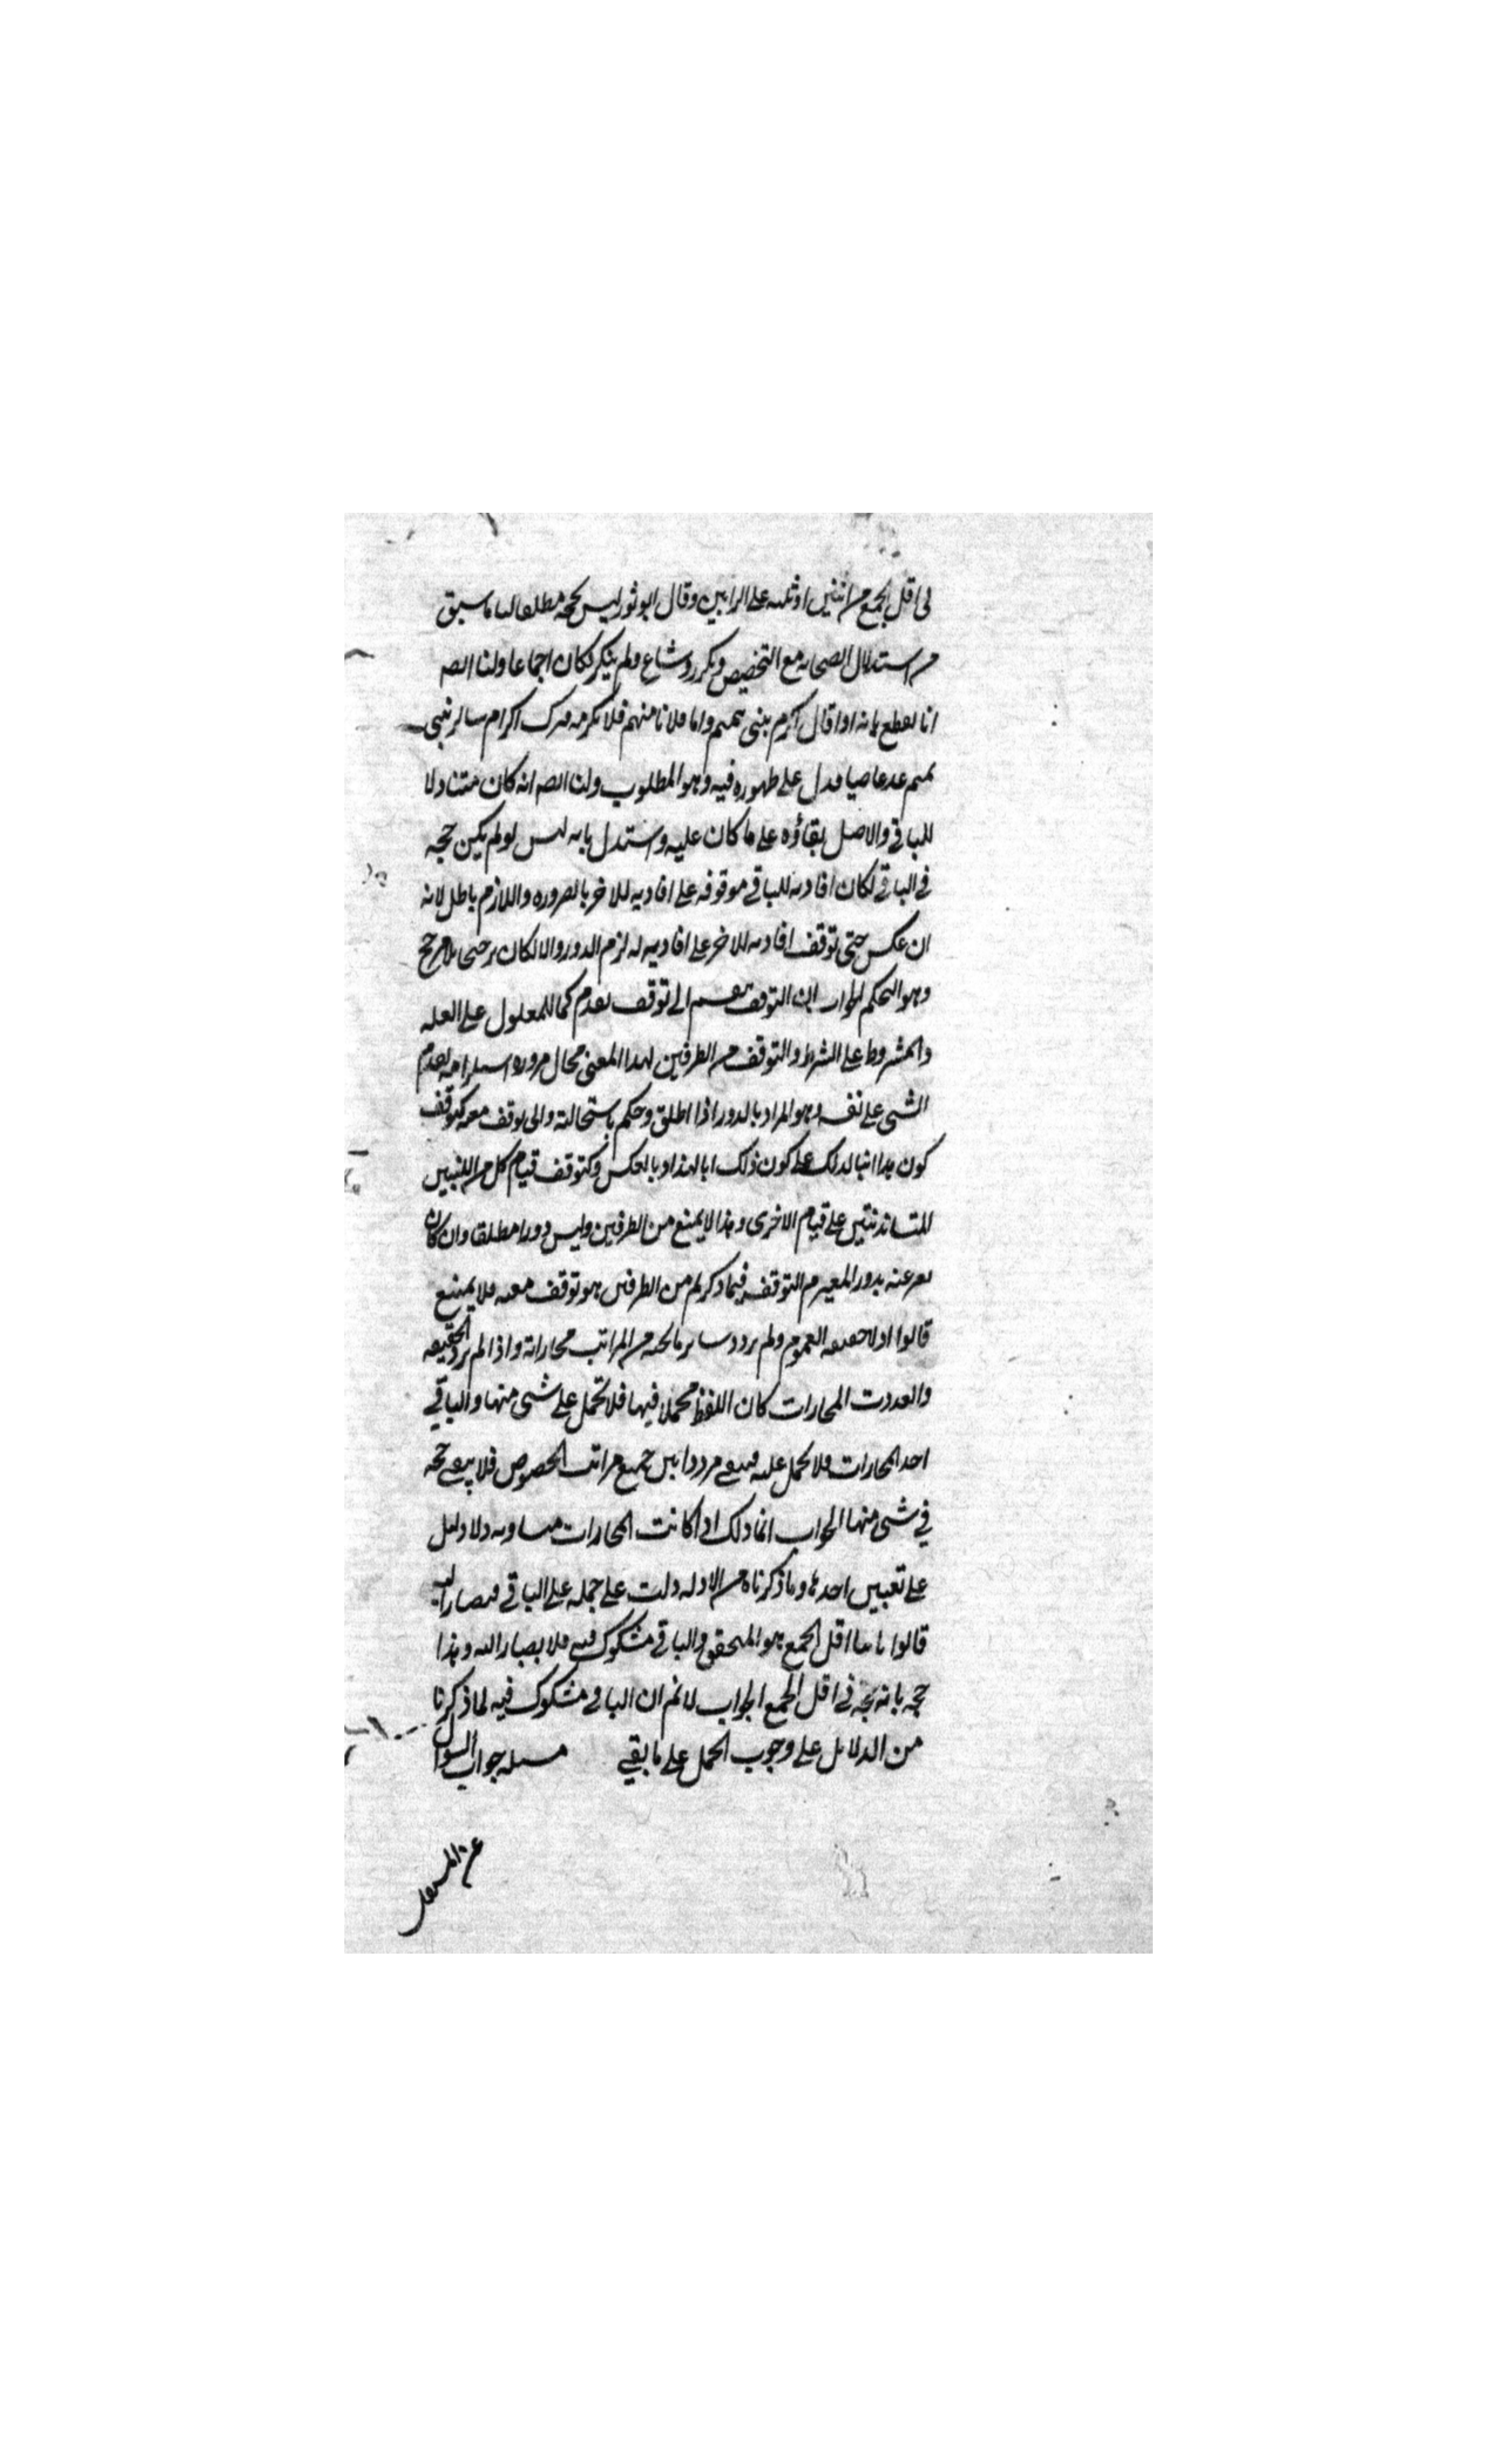 في اقل الجمع من اثنين او ثلثه على الرايين وقال ابو ثور ليس بحجه مطلقا لنا ما سبق
من استدلال الصحابه مع التخصيص وتكرر وشاع ولم ينكر فكان اجماعا ولنا ايضا
انا نقطع بانه اذا قال اكرم بني تميم واما فلانا منهم فلا تكرمه فترك اكرام سائر بني
تميم عد عاصيا فدل على ظهوره فيه وهو المطلوب ولنا ايضا انه كان متناولا
للباقي والاصل بقاؤه على ما كان عليه واستدل بانه لو لم يكن حجه
في الباقي لكان افادته للباقي موقوفه على افادته للاخر بالضروره واللازم باطل لانه
ان عكس حتى توقف افادته للاخر على افادته له لزم الدور والا لكان ترجيحا بلا مرجح
وهو التحكم الجواب ان التوقف ينقسم الى توقف تقدم كما للمعلول على العله
والمشروط على الشرط والتوقف من الطرفين بهذا المعنى محال ضروره استلزامه تقدم
الشي على نفسه وهو المراد بالدور اذا اطلق وحكم باستحالته والى توقف معيه كتوقف
كون هذا ابنا لذلك على كون ذلك ابا لهذا وبالعكس وكتوقف قيام كل من اللبنتين
المتساندتين على قيام الاخرى وهذا لا يمتنع من الطرفين وليس دورا مطلقا وان كان
يعبر عنه بدور المعيه والتوقف فيما ذكرتم من الطرفين هو توقف معيه فلا يمتنع
قالوا اولا حقيقه العموم ولم يرد وسائر ما تحته من المراتب مجازاته واذا لم ترد الحقيقه
وتعددت المجازات كان اللفظ مجملا فيها فلا تحمل على شي منها والباقي
احد المجازات فلا يحمل عليه فيبقى مرددا بين جميع مراتب الخصوص فلا يبقى حجه
في شي منها الجواب انما ذلك اذا كانت المجازات متساويه ولا دليل
على تعيين احدها وما ذكرناه من الادله دلت على حمله على الباقي فيصار اليه
قالوا ثانيا اقل الجمع هو المتحقق والباقي مشكوك فيه فلا يصار اليه وهذا
حجه بانه حجه في اقل الجمع الجواب لا نم ان الباقي مشكوك فيه لما ذكرنا
من الدلائل على وجوب الحمل على ما بقي مسله جواب السوال